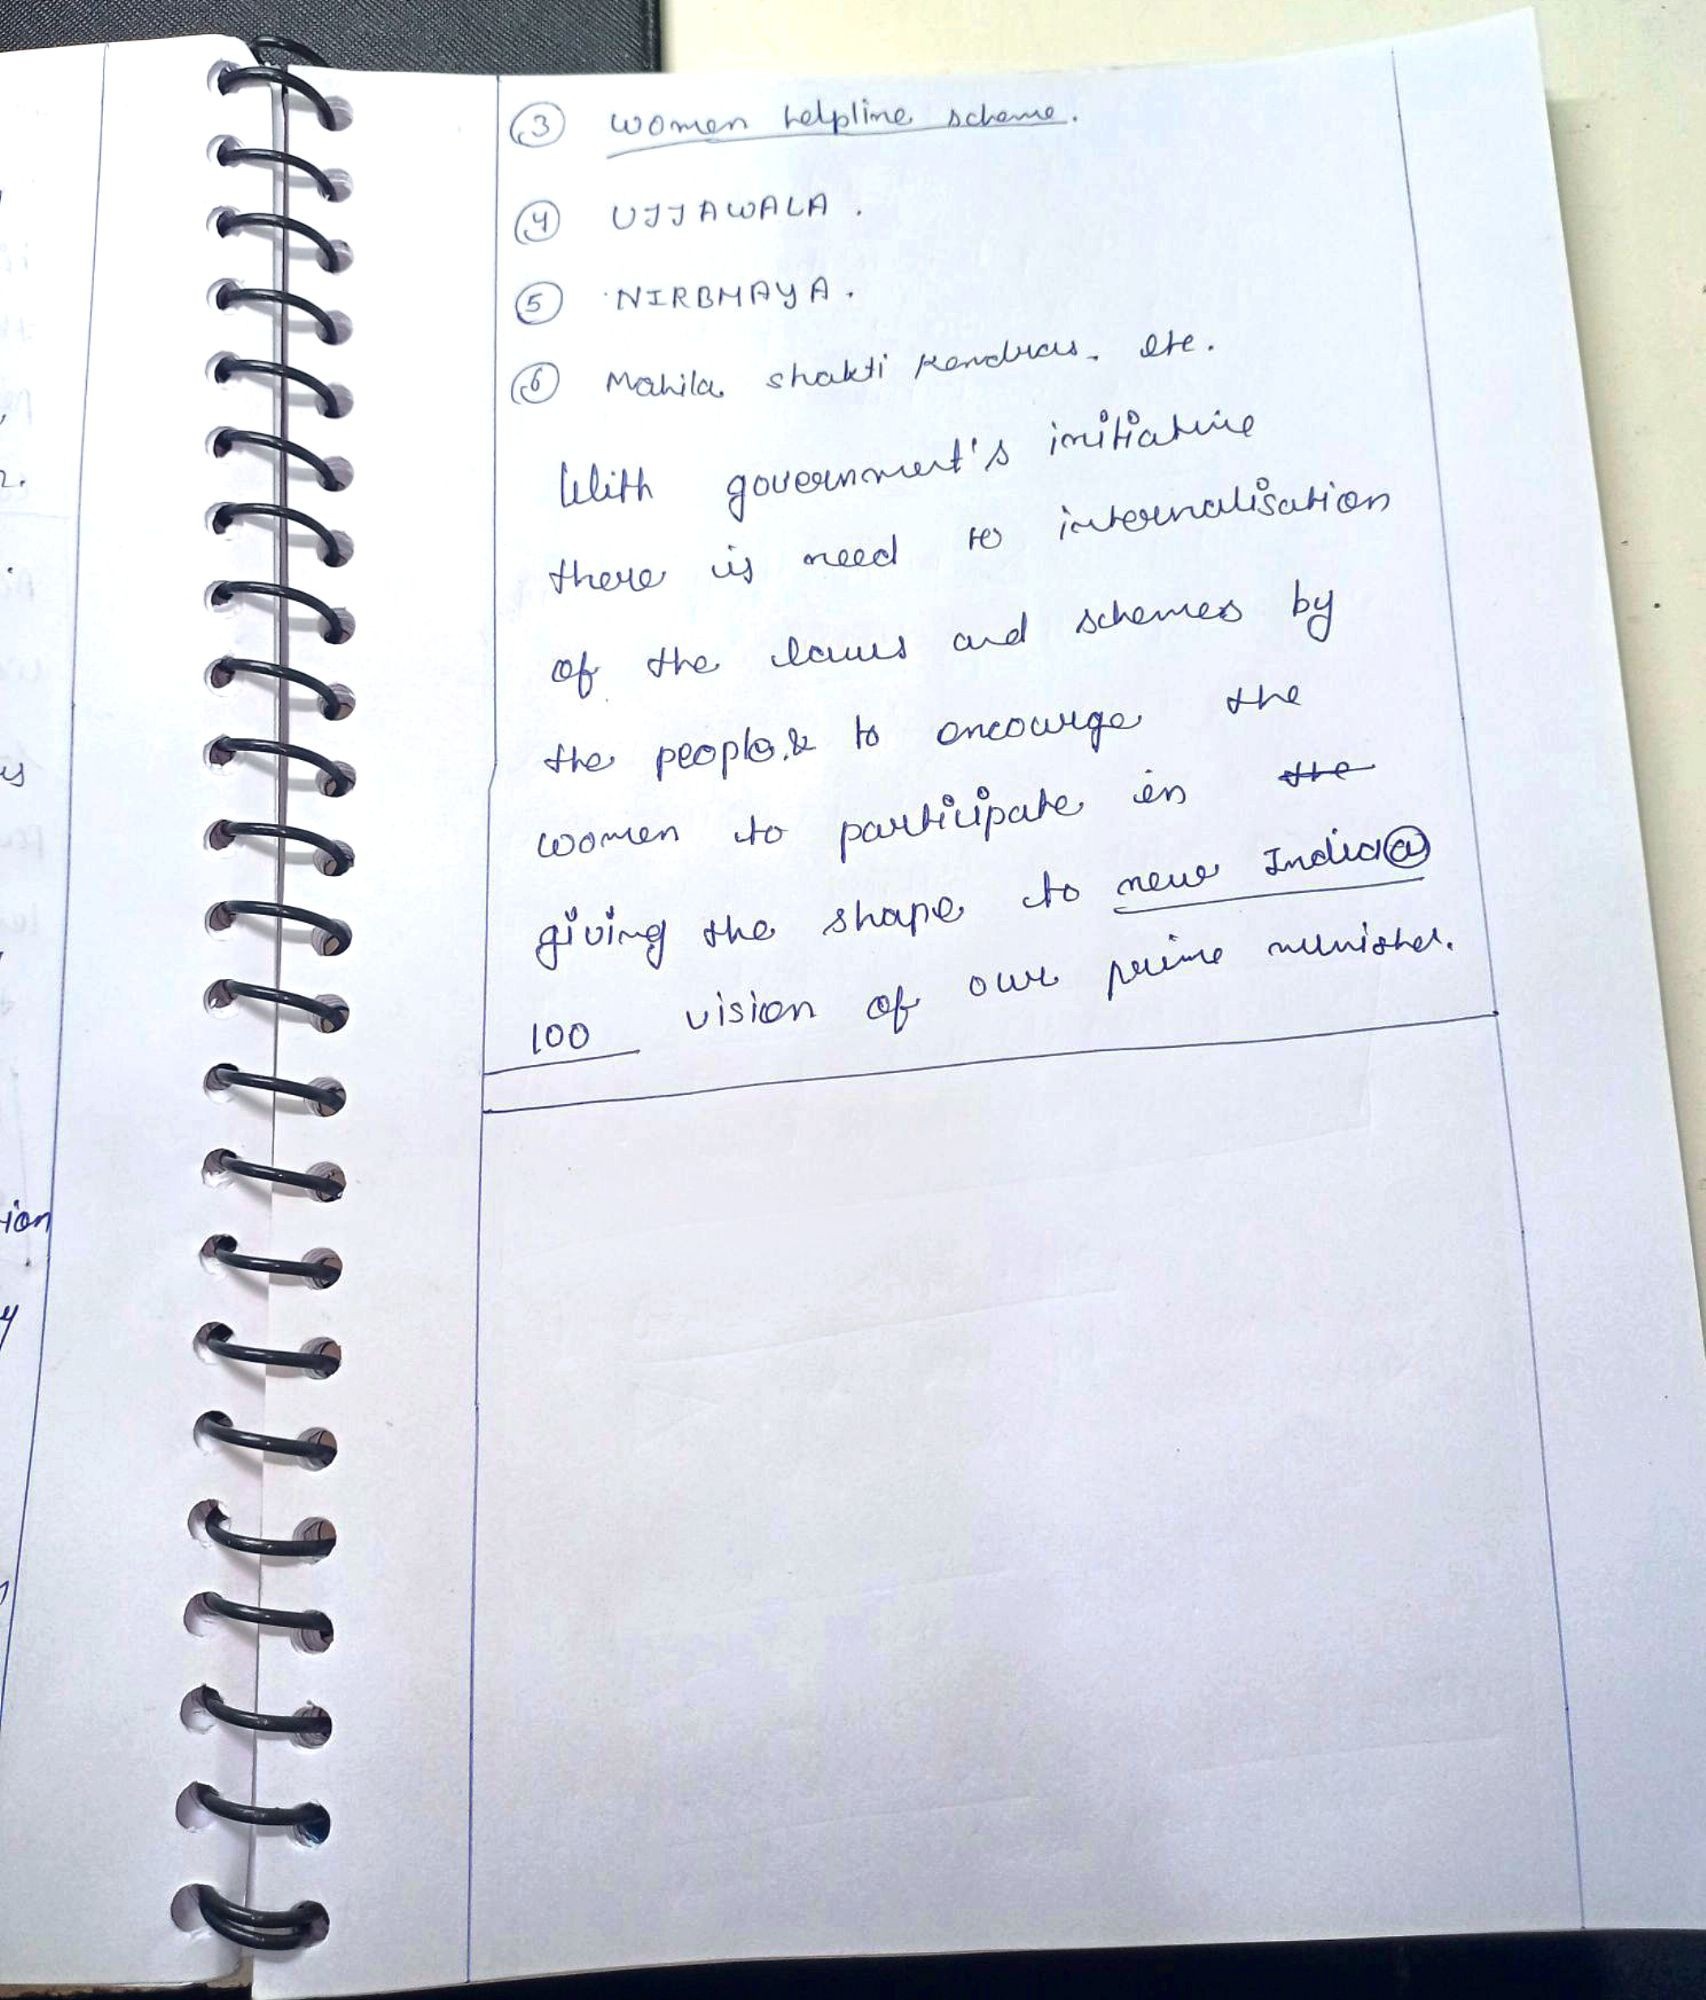 ③ women helpline scheme.
④ UJJAWALA.
⑤ NIRBHAYA.
⑥ Mahila shakti kendras. etc.
With government's initiative
there is need to internalisation
of the laws and schemes by
the people & to encourge the
women to participate in the
giving the shape to new India@
100 vision of our prime minister.
is
ion
y